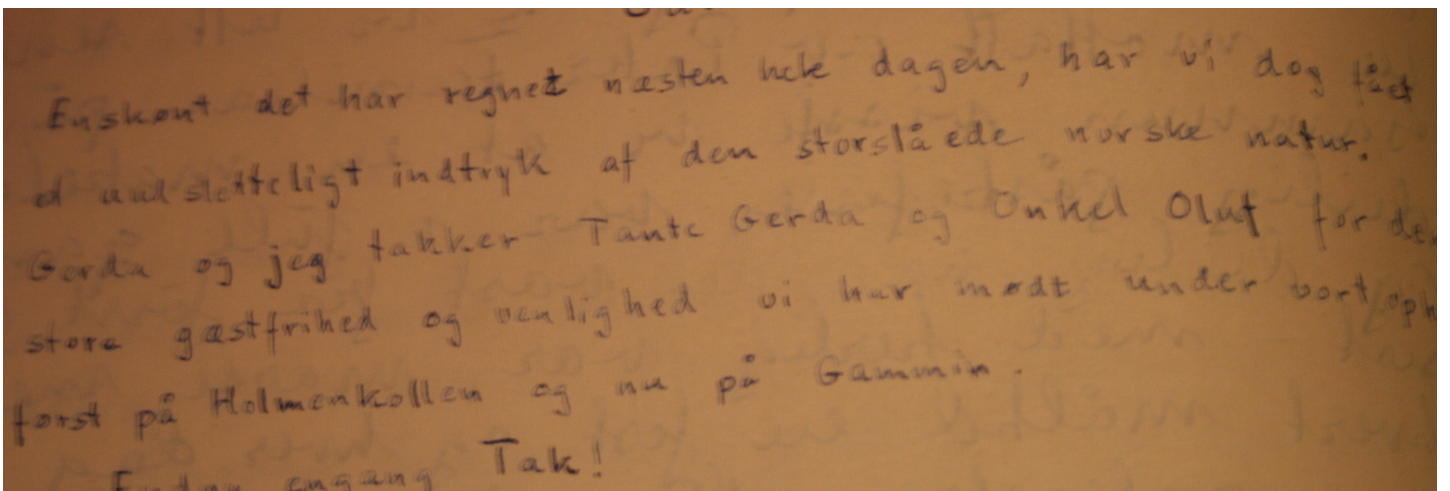 Enskønt det har regnet næsten hele dagen, har vi dog fået
et uudsletteligt indtryk af den storslåede norske natur.
Gerda og jeg takker Tante Gerda og Onkel Oluf for den
store gæstfrihed og venlighed vi har mødt under vort oph
først på Holmenkollen og nu på Gammin.
Endnu engang Tak!